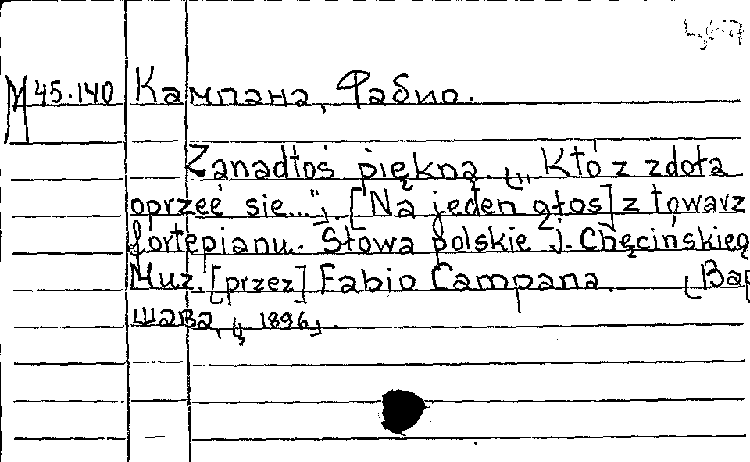 М 45.140 Кампана, Фабио.
Zanadtoś piękną. „Któż zdoła
oprzeć się..." [Na jeden głos] z towarz
fortepianu. Słowa polskie J. Chęcińskieg
Muz. [przez] Fabio Campana. [Вар
шава, ц. 1896].